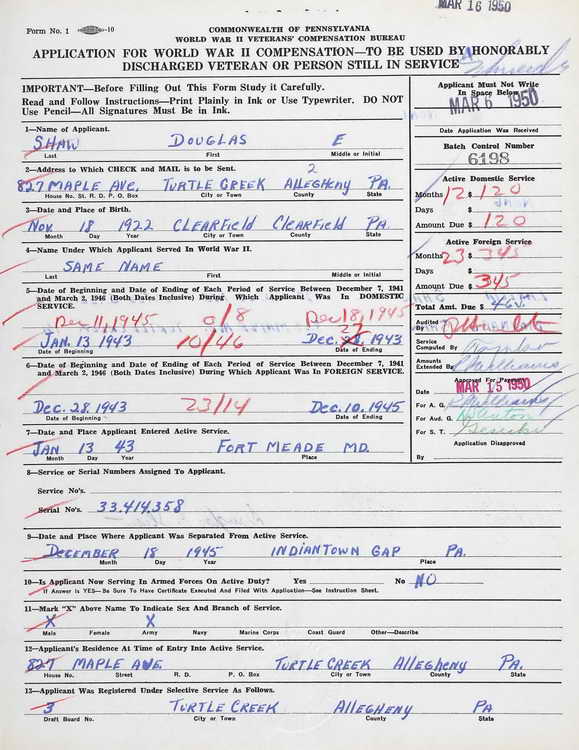 MAR 16 1950
Form No. 1 -10
COMMONWEALTH OF PENNSYLVANIA
WORLD WAR II VETERANS' COMPENSATION BUREAU
APPLICATION FOR WORLD WAR II COMPENSATION—TO BE USED BY HONORABLY
DISCHARGED VETERAN OR PERSON STILL IN SERVICE
IMPORTANT—Before Filling Out This Form Study it Carefully.
Read and Follow Instructions—Print Plainly in Ink or Use Typewriter. DO NOT
Use Pencil—All Signatures Must Be in Ink.
Applicant Must Not Write
In Space Below
MAR 6 1950
Date Application Was Received
Batch Control Number
6198
1—Name of Applicant.
SHAW DOUGLAS E
Last First Middle or Initial
2—Address to Which CHECK and MAIL is to be Sent. 2
827 MAPLE AVE, TURTLE CREEK ALLEGHENY PA.
House No. St. R. D. P. O. Box City or Town County State
Active Domestic Service
Months 12 $ 120
Days $
Amount Due $ 120
3—Date and Place of Birth.
NOV. 18 1922 CLEARFIELD CLEARFIELD PA.
Month Day Year City or Town County State
Active Foreign Service
Months 23 $ 345
Days $
Amount Due $ 345
4—Name Under Which Applicant Served In World War II.
SAME NAME
Last First Middle or Initial
Total Amt. Due $ 465
5—Date of Beginning and Date of Ending of Each Period of Service Between December 7, 1941
and March 2, 1946 (Both Dates Inclusive) During Which Applicant Was In DOMESTIC
SERVICE.
Dec 11, 1945 0/8 Dec 18, 1945
27
JAN. 13 1943 10/46 DEC. 28, 1943
Date of Beginning Date of Ending
Audited By
Service
Computed By
Amounts
Extended By
6—Date of Beginning and Date of Ending of Each Period of Service Between December 7, 1941
and March 2, 1946 (Both Dates Inclusive) During Which Applicant Was In FOREIGN SERVICE.
DEC. 28, 1943 23/14 DEC. 10, 1945
Date of Beginning Date of Ending
Approved For Payment
Date MAR 15 1950
For A. G.
For Aud. G.
For S. T.
Application Disapproved
By
7—Date and Place Applicant Entered Active Service.
JAN 13 43 FORT MEADE MD.
Month Day Year Place
8—Service or Serial Numbers Assigned To Applicant.
Service No's.
Serial No's. 33.414.358
9—Date and Place Where Applicant Was Separated From Active Service.
DECEMBER 18 1945 INDIANTOWN GAP PA.
Month Day Year Place
10—Is Applicant Now Serving In Armed Forces On Active Duty? Yes No NO
If Answer is YES—Be Sure To Have Certificate Executed And Filed With Application—See Instruction Sheet.
11—Mark "X" Above Name To Indicate Sex And Branch of Service.
X X
Male Female Army Navy Marine Corps Coast Guard Other—Describe
12—Applicant's Residence At Time of Entry Into Active Service.
827 MAPLE AVE TURTLE CREEK ALLEGHENY PA.
House No. Street R. D. P. O. Box City or Town County State
13—Applicant Was Registered Under Selective Service As Follows.
3 TURTLE CREEK ALLEGHENY PA
Draft Board No. City or Town County State